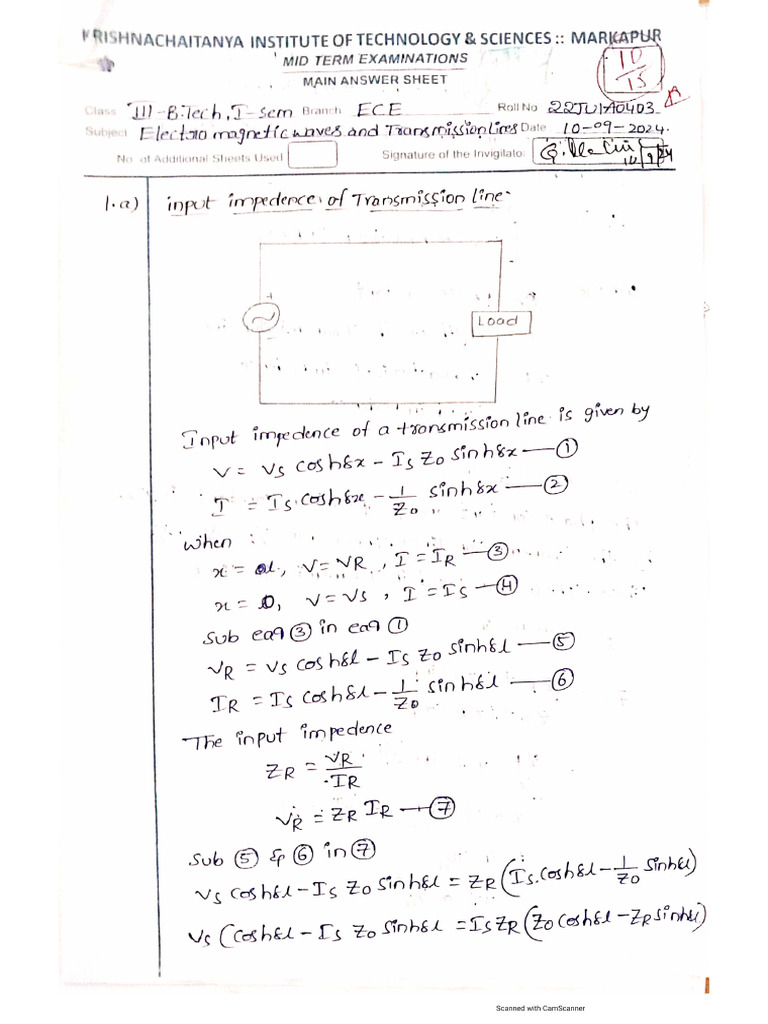 KRISHNACHAITANYA INSTITUTE OF TECHNOLOGY & SCIENCES :: MARKAPUR
MID TERM EXAMINATIONS
MAIN ANSWER SHEET
10/15
Class III-B.Tech, I-sem Branch ECE Roll No 22JU1A0403
Subject Electro magnetic waves and Transmission lines Date 10-09-2024.
No. of Additional Sheets Used Signature of the Invigilator
1.a) input impedence of Transmission line.
Load
Input impedence of a transmission line is given by
V = Vs coshδx - Is Zo sinhδx — ①
I = Is coshδx - 1/Zo sinhδx — ②
when
x = l, V = VR, I = IR — ③
x = 0, V = Vs, I = Is — ④
Sub eqq ③ in eaq ①
VR = Vs coshδl - Is Zo sinhδl — ⑤
IR = Is coshδl - 1/Zo sinhδl — ⑥
The input impedence
ZR = VR/IR
VR = ZR IR — ⑦
Sub ⑤ & ⑥ in ⑦
Vs coshδl - Is Zo sinhδl = ZR (Is coshδl - 1/Zo sinhδl)
Vs (coshδl - Is Zo sinhδl = Is ZR (Zo coshδl - ZR sinhδl)
Scanned with CamScanner